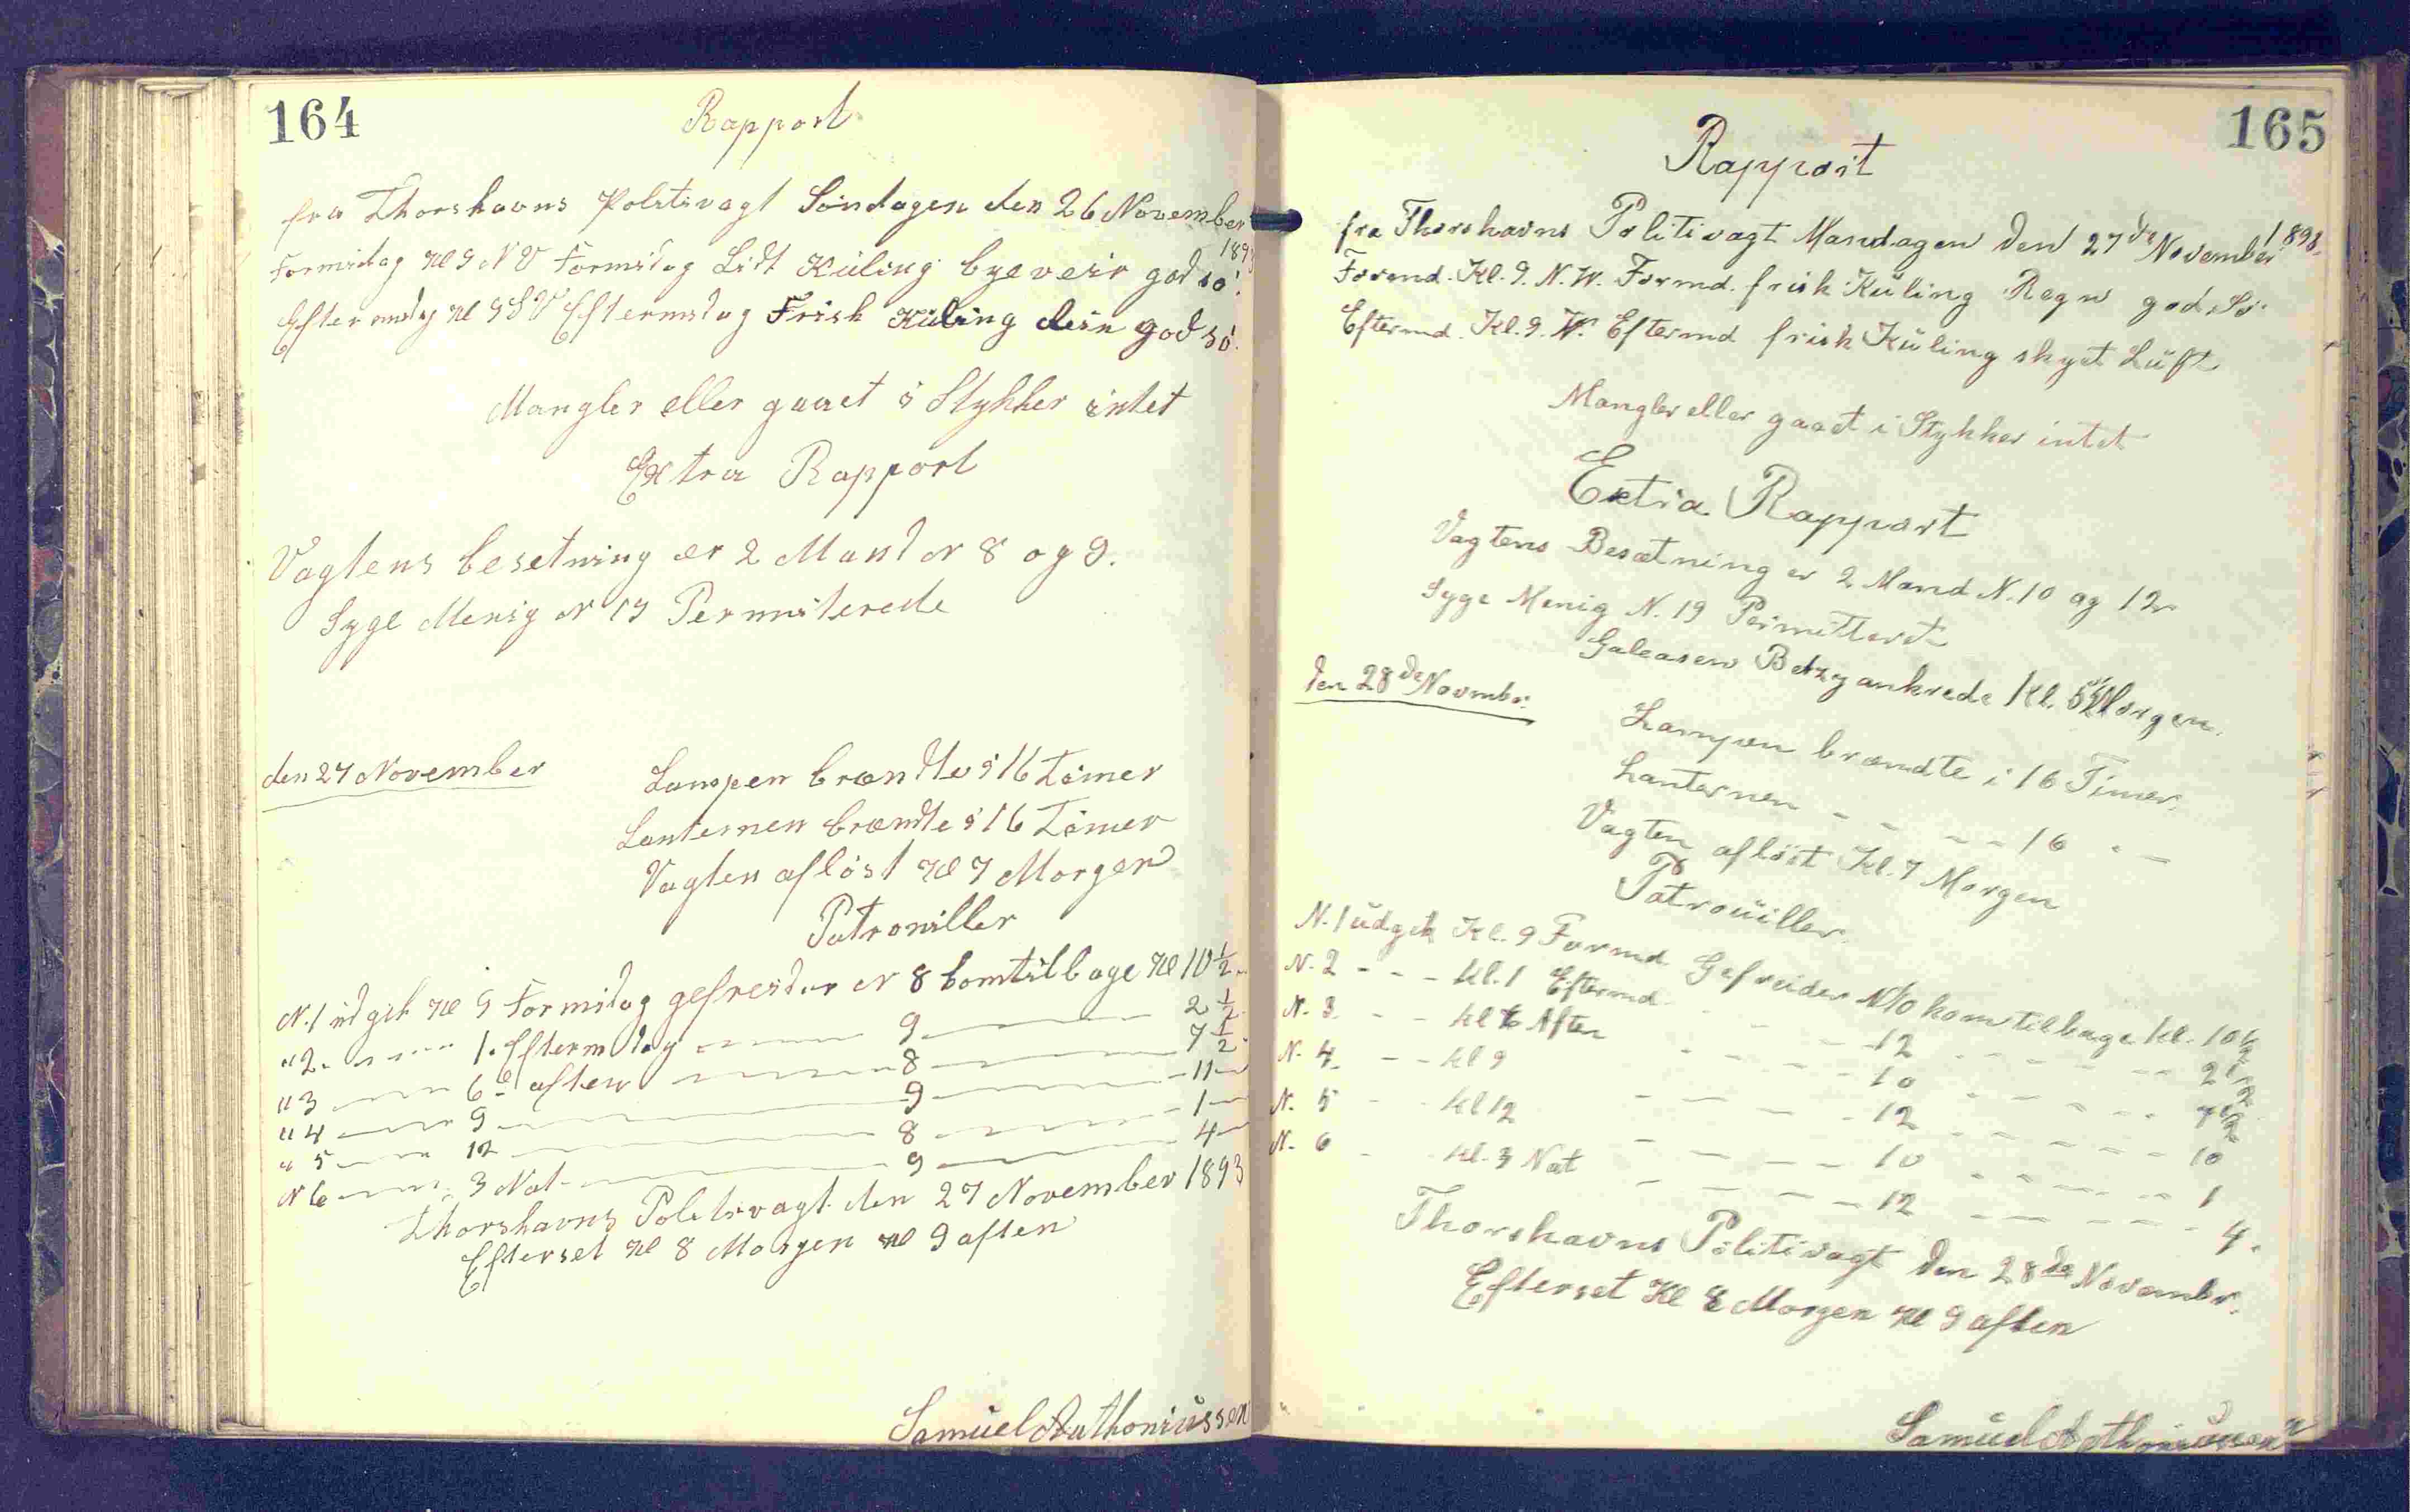 164
Rapport
fra Thorshavns Politivagt Søndagen den 26 November
1893
Formidag Kl 9 N V Formidag Lidt Küling bye veir god sö.
Eftermidag Kl 9 S V Eftermidag Frisk Küling god sö.
Mangler eller gaaet i Stykker intet
Extra Rapport
Vagtens besetning er 2 Mand N 8 og 9.
Syge Menig N 19 Permiterede
den 27 November
Lampen brændte i 16 Timer
Lanternen brændte i 16 Timer
Vagten aflöst Kl 7 Morgen
Patrouiller
N.1 udgik Kl 9 Formidag gefreider N 8 komtilbage Kl 10 1/2
" 2. 1. Eftermidag 9 2 1/2
" 3 6 aften 8 7 1/2
" 4 9 9 11
" 5 12 8 1
N 6 3 Nat 9 4
Thorshavns Politivagt den 27 November 1893
Efterset Kl 8 Morgen Kl 9 aften
Samuel Anthoniussen
165
Rapport
fra Thorshavns Politivagt Mandagen den 27de November 1893.
Formd. Kl. 9. N. W. Formd. frisk Küling Regn god Sö.
Eftermd. Kl. 9. W. Eftermd frisk Küling skyet Luft
Mangler eller gaaet i Stykker intet
Extra Rapport
Vagtens Besætning er 2 Mand N. 10 og 12
Syge Menig N. 19 Permitteret
Galeasen Betzy ankrede Kl. 5 1/2 Morgen.
den 28de Novmbr.
Lampen brændte i 16 Timer.
Lanternen - - - - 16 - -
Vagten aflöst Kl. 7 Morgen
Patrouiller.
N. 1 udgik Kl. 9 Formd. Gefreider N 10 kom tilbage Kl. 10 1/2
N. 2 - - - Kl. 1 Eftermd - - - 12 - - - - 2 1/2
N. 3. - - Kl 6 Aften - - - 10 - - - - 7 1/2
N. 4. - - Kl 9 - - - 12 - - - - 10
N. 5 - - Kl 12 - - - 10 - - - - 1
N. 6 - Kl. 3 Nat - - - 12 - - - - 4.
Thorshavns Politivagt den 28de Novembr.
Efterset Kl 8 Morgen Kl 9 aften
Samuel Anthoniussen